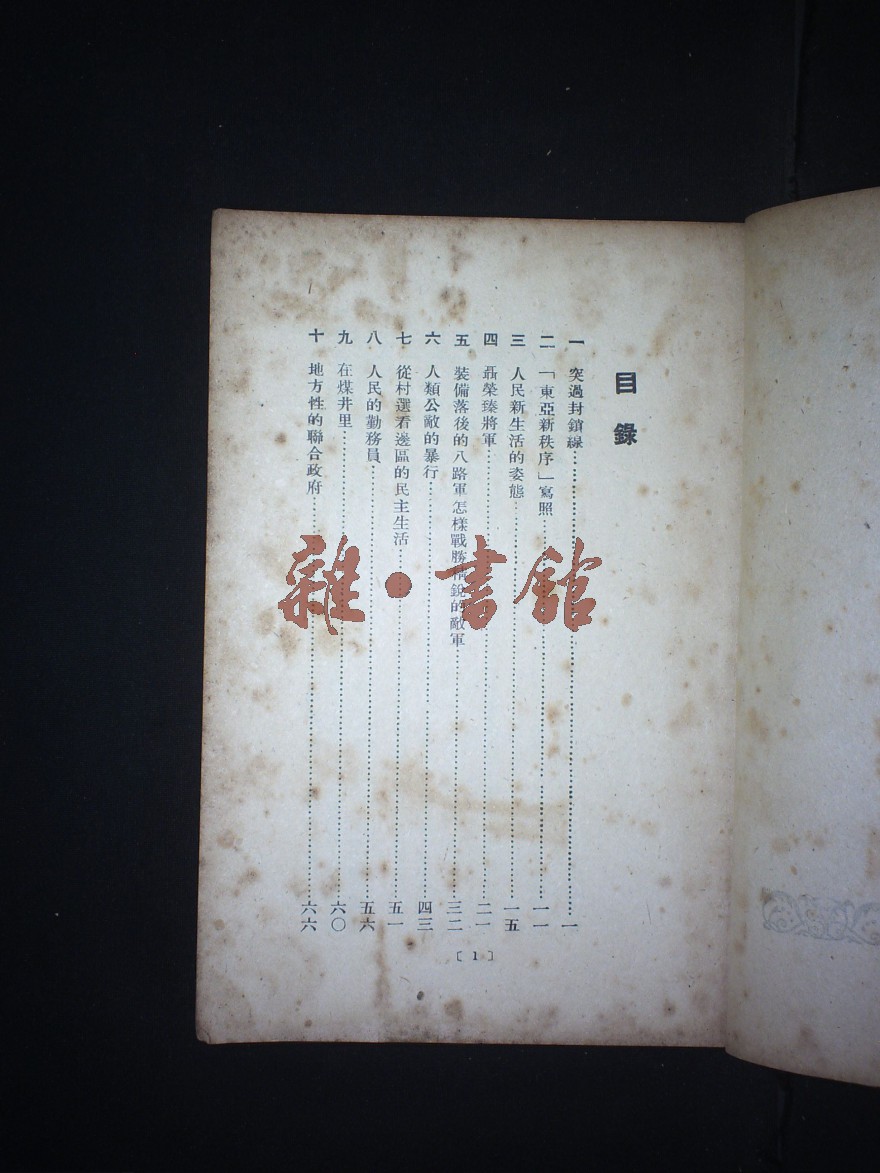 目錄
一 突過封鎖線 一
二 「東亞新秩序」寫照 一一
三 人民新生活的姿態 一五
四 聶榮臻將軍 二一
五 裝備落後的八路軍怎樣戰勝精銳的敵軍 三二
六 人類公敵的暴行 四三
七 從村選看邊區的民主生活 五一
八 人民的勤務員 五六
九 在煤井里 六〇
十 地方性的聯合政府 六六
〔1〕
雜·書館